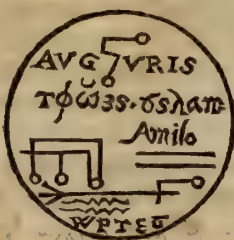 AVG VRIS
τφωзs·σsλαm
Amilo
WPTEσ